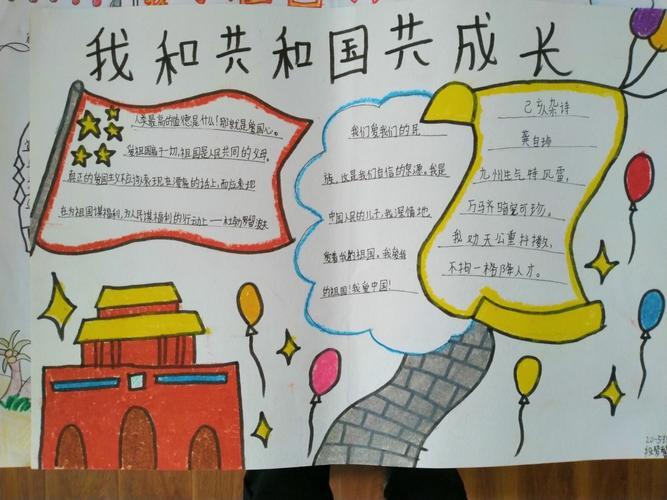 我和共和国共成长
人类最高的道德是什么?那就是爱国心。
爱祖国高于一切,祖国是人民共同的父母。
真正的爱国主义不应该表现在漂亮的话上,而应表现
在为祖国谋福利,为人民谋福利的行动上——杜勃罗留波夫
我们爱我们的民
族,这是我们自信的泉源,我是
中国人民的儿子,我深情地
爱着我的祖国,我爱我
的祖国!我爱中国!
己亥杂诗
龚自珍
九州生气恃风雷,
万马齐喑究可
我劝天公重抖擞,
不拘一格降人才。